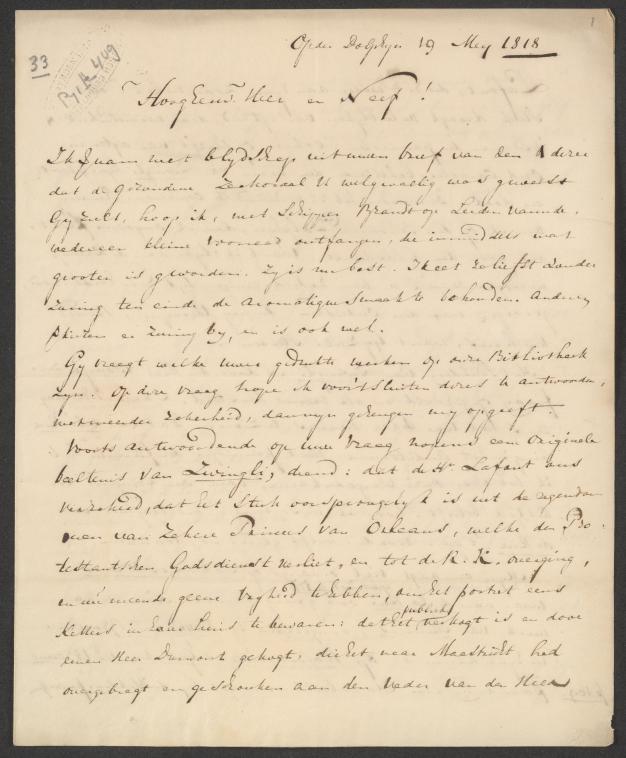 33
Op den Dolphyn 19 Mey 1818
HoogEerw Heer en Neef!
Ik quam met blydschap uit uwen brief van den deser
dat de gezondene Zeekoraal U welgevallig was geweest
Gy zult, hoop ik, met Schipper Brandt op Leiden varende,
wedereen kleine voorraad ontfangen, die inmiddels wat
grooter is geworden. Zy is nu best. Ik eet ze liefst zonder
zuring ten einde de aromatique smaak te behouden. Andere
zuring by, en is ook wel.
Gy vraegt welke uwer gedrukte werken op onze Bibliotheek
zyn. Op deze vraeg hope ik voor't sluiten dezes te antwoorden,
met meerder zekerheid, dan myn geheugen my opgeeft.
Voorts antwoordende op uwe vraeg nopens een origineele
beeltenis van Zwingli, diend: dat de Hr Lafont ons
verzekerd, dat het stuk oorsprongelyk is uit de
van zekere Prince van Orleans, welke den Pro-
testantschen Godsdienst verliet, en tot de R. K. overging,
en nu meende geene vryheid te hebben, om het portret eens
Ketters in Huis te bewaren: dat het publiek verkogt is en door
eenen Heer gekogt, die het naar Maestricht had
overgebragt en geschonken aan den Vader van den Heer